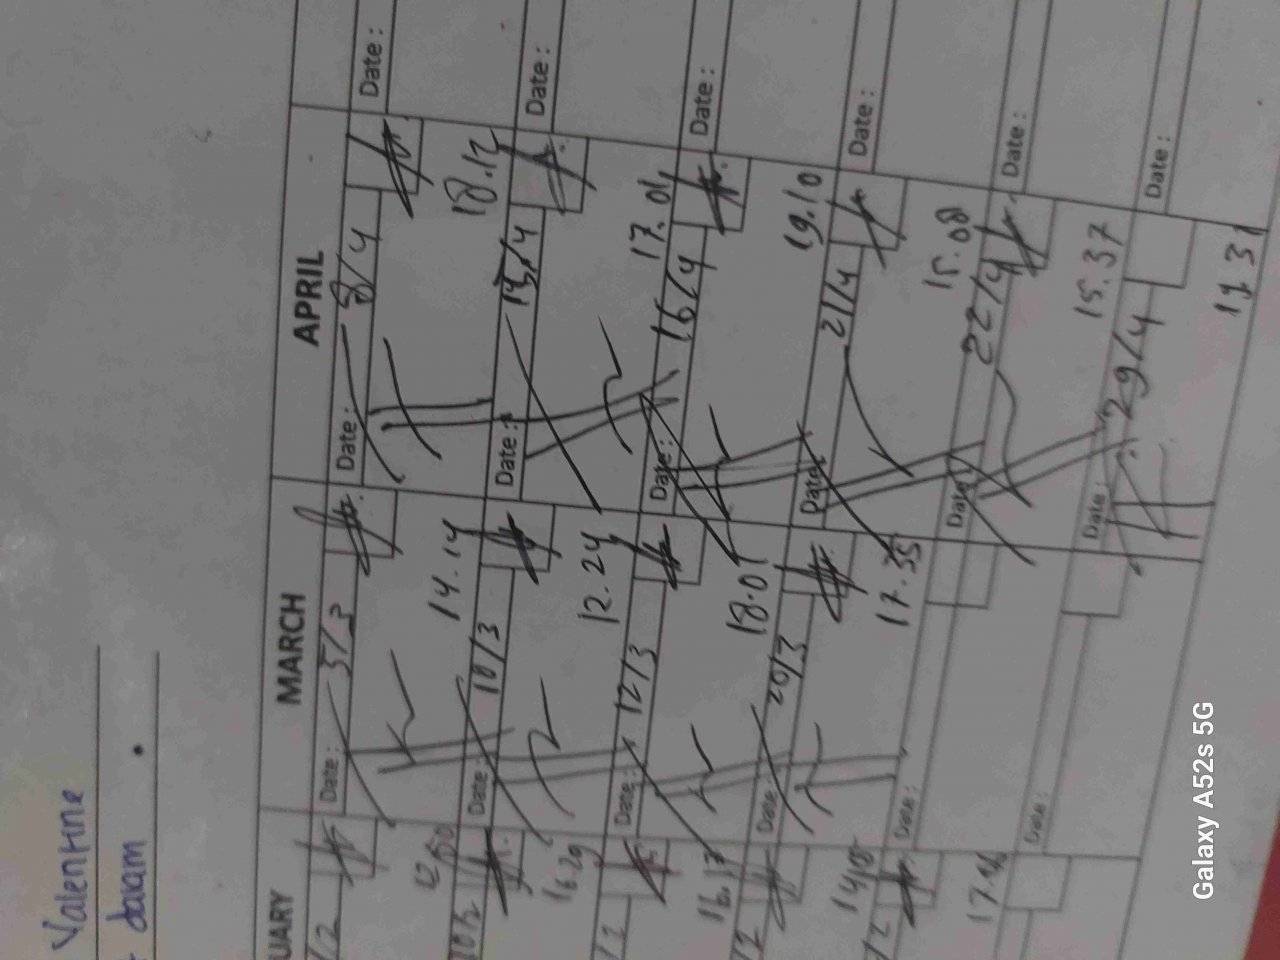 Valentine
UARY
MARCH
APRIL
Date: 5/3
14.14
Date: 10/3
12.24
Date: 12/3
18.01
Date: 20/3
17.35
Date:
Date:
Date: 8/4
18.12
Date:
17.01
Date: 16/4
19.10
Date: 21/4
15.08
Date: 22/4
15.37
Date: 29/4
Date:
Date:
Date:
Date:
Date:
Date:
16.29
Galaxy A52s 5G